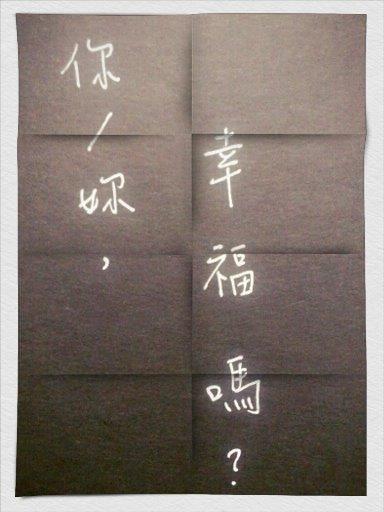 你/妳,
幸福嗎?